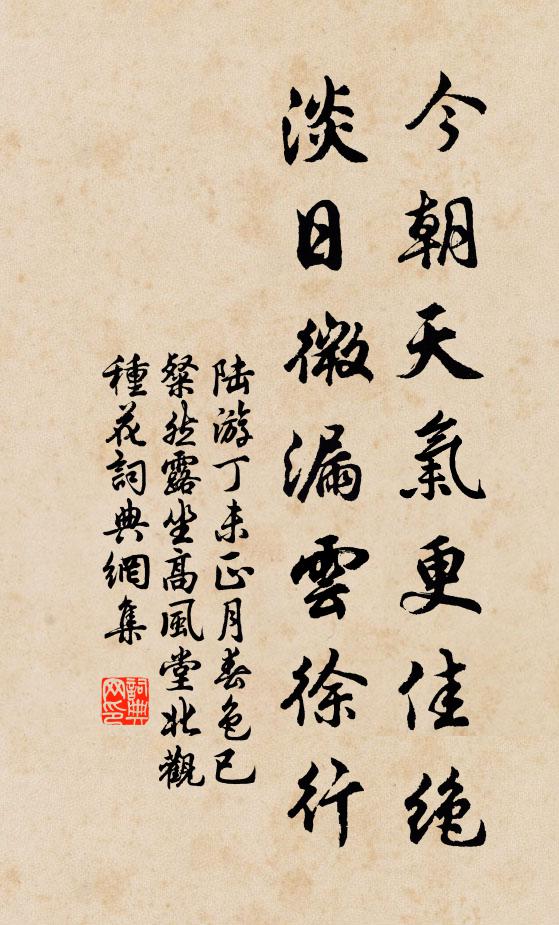 今朝天氣更佳絕
淡日微漏雲徐行
陆游丁未正月春色已
粲然露坐高風堂北觀
種花詞典網集
詞典
网印